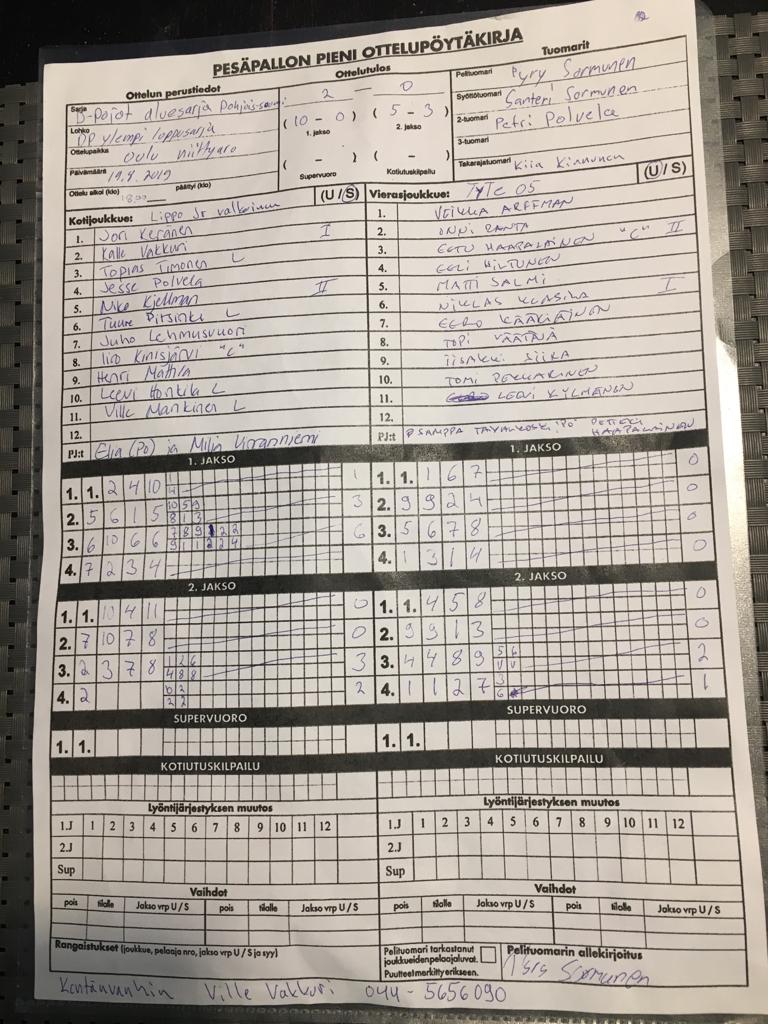 PESÄPALLON PIENI OTTELUPÖYTÄKIRJA
Ottelun perustiedot
Sarja D-Pojat aluesarja Pohjois-suomi
Lohko DP ylempi loppusarja
Ottelupaikka Oulu niittyaro
Päivämäärä 19.8.2019
Ottelu alkoi (klo) 18.00 päättyi (klo)
Ottelutulos
2 — 0
( 10 - 0 ) ( 5 - 3 )
1. jakso 2. jakso
( - ) ( - )
Supervuoro Kotiutuskilpailu
Tuomarit
Pelituomari Pyry Sormunen
Syöttötuomari Santeri Sormunen
2-tuomari Petri Polvela
3-tuomari
Takarajatuomari Kiia Kinnunen
Kotijoukkue: Lippo Jr valkoinen (U / S)
1. Joni Keränen I
2. Kalle Vakkuri
3. Topias Timonen L
4. Jesse Polvela
5. Niko Kjellman II
6. Tuure Pitsinki L
7. Juho Lehmusvuori
8. Iiro Kinisjärvi "C"
9. Henri Mattila
10. Leevi Honkila L
11. Ville Mankinen L
12.
PJ:t Elia (PO) ja Milja Kiranniemi
Vierasjoukkue: Tyle 05 (U / S)
1. VEIKKA ARFFMAN
2. ONNI RANTA
3. EETU HAAPALAINEN "C" II
4. EELI HILTUNEN
5. MATTI SALMI
6. NIKLAS KLASILA I
7. EERO KÄÄRIÄINEN
8. TOPI VÄÄTÄJÄ
9. IISAKKI SIIRA
10. TOMI PEKKARINEN
11. LEEVI KYLMÄNEN
12.
PJ:t SAMPPA TAIVALKOSKI "PO" PETTERI HAAPALAINEN
1. JAKSO
1. 1. 2 4 10 1
2. 5 6 1 5 3
3. 6 10 6 6 6
4. 7 2 3 4
1. JAKSO
1. 1. 1 6 7 0
2. 9 9 2 4 0
3. 5 6 7 8 0
4. 1 3 1 4 0
2. JAKSO
1. 1. 10 4 11 0
2. 7 10 7 8 0
3. 2 3 7 8 1 2 6 3
4 8 8
4. 2 2
2. JAKSO
1. 1. 4 5 8 0
2. 9 9 1 3 0
3. 4 4 8 9 5 6 2
4. 1 1 2 7 3 1
6
SUPERVUORO
1. 1.
SUPERVUORO
1. 1.
KOTIUTUSKILPAILU
KOTIUTUSKILPAILU
Lyöntijärjestyksen muutos
1.J 1 2 3 4 5 6 7 8 9 10 11 12
2.J
Sup
Lyöntijärjestyksen muutos
1.J 1 2 3 4 5 6 7 8 9 10 11 12
2.J
Sup
Vaihdot
pois tilalle Jakso vrp U / S pois tilalle Jakso vrp U / S
Vaihdot
pois tilalle Jakso vrp U / S pois tilalle Jakso vrp U / S
Rangaistukset (joukkue, pelaaja nro, jakso vrp U / S ja syy)
Pelituomari tarkastanut
joukkueiden pelaajaluvat.
Puutteet merkitty erikseen.
Pelituomarin allekirjoitus
Sormunen
Kentänvanhin Ville Vakkuri 044-5656090